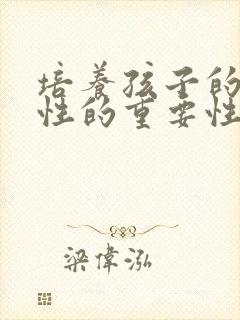 培养孩子的
性的重要性
梁偉泓